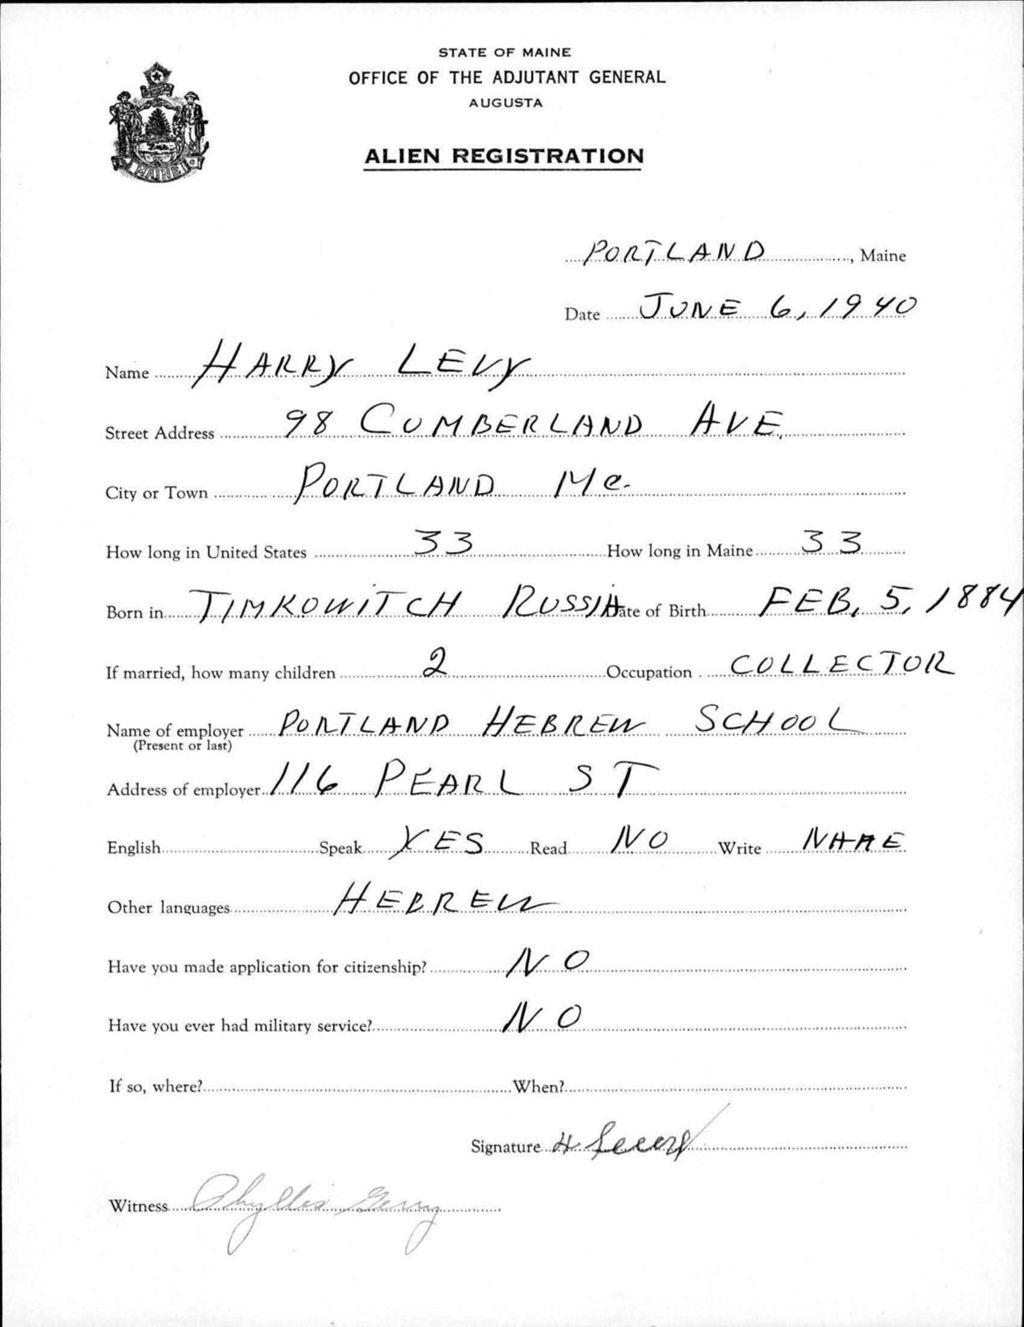 STATE OF MAINE
OFFICE OF THE ADJUTANT GENERAL
AUGUSTA
ALIEN REGISTRATION
PORTLAND, Maine
Date JUNE 6, 1940
Name HARRY LEVY
Street Address 98 CUMBERLAND AVE.
City or Town PORTLAND Me.
How long in United States 33 How long in Maine 33
Born in TIMKOWITCH RUSSIA Date of Birth FEB, 5, 1884
If married, how many children 2 Occupation COLLECTOR
Name of employer PORTLAND HEBREW SCHOOL
(Present or last)
Address of employer 116 PEARL ST
English Speak YES Read NO Write NAME
Other languages HEBREW
Have you made application for citizenship? NO
Have you ever had military service? NO
If so, where? When?
Signature H Levy
Witness Phyllis Gerry